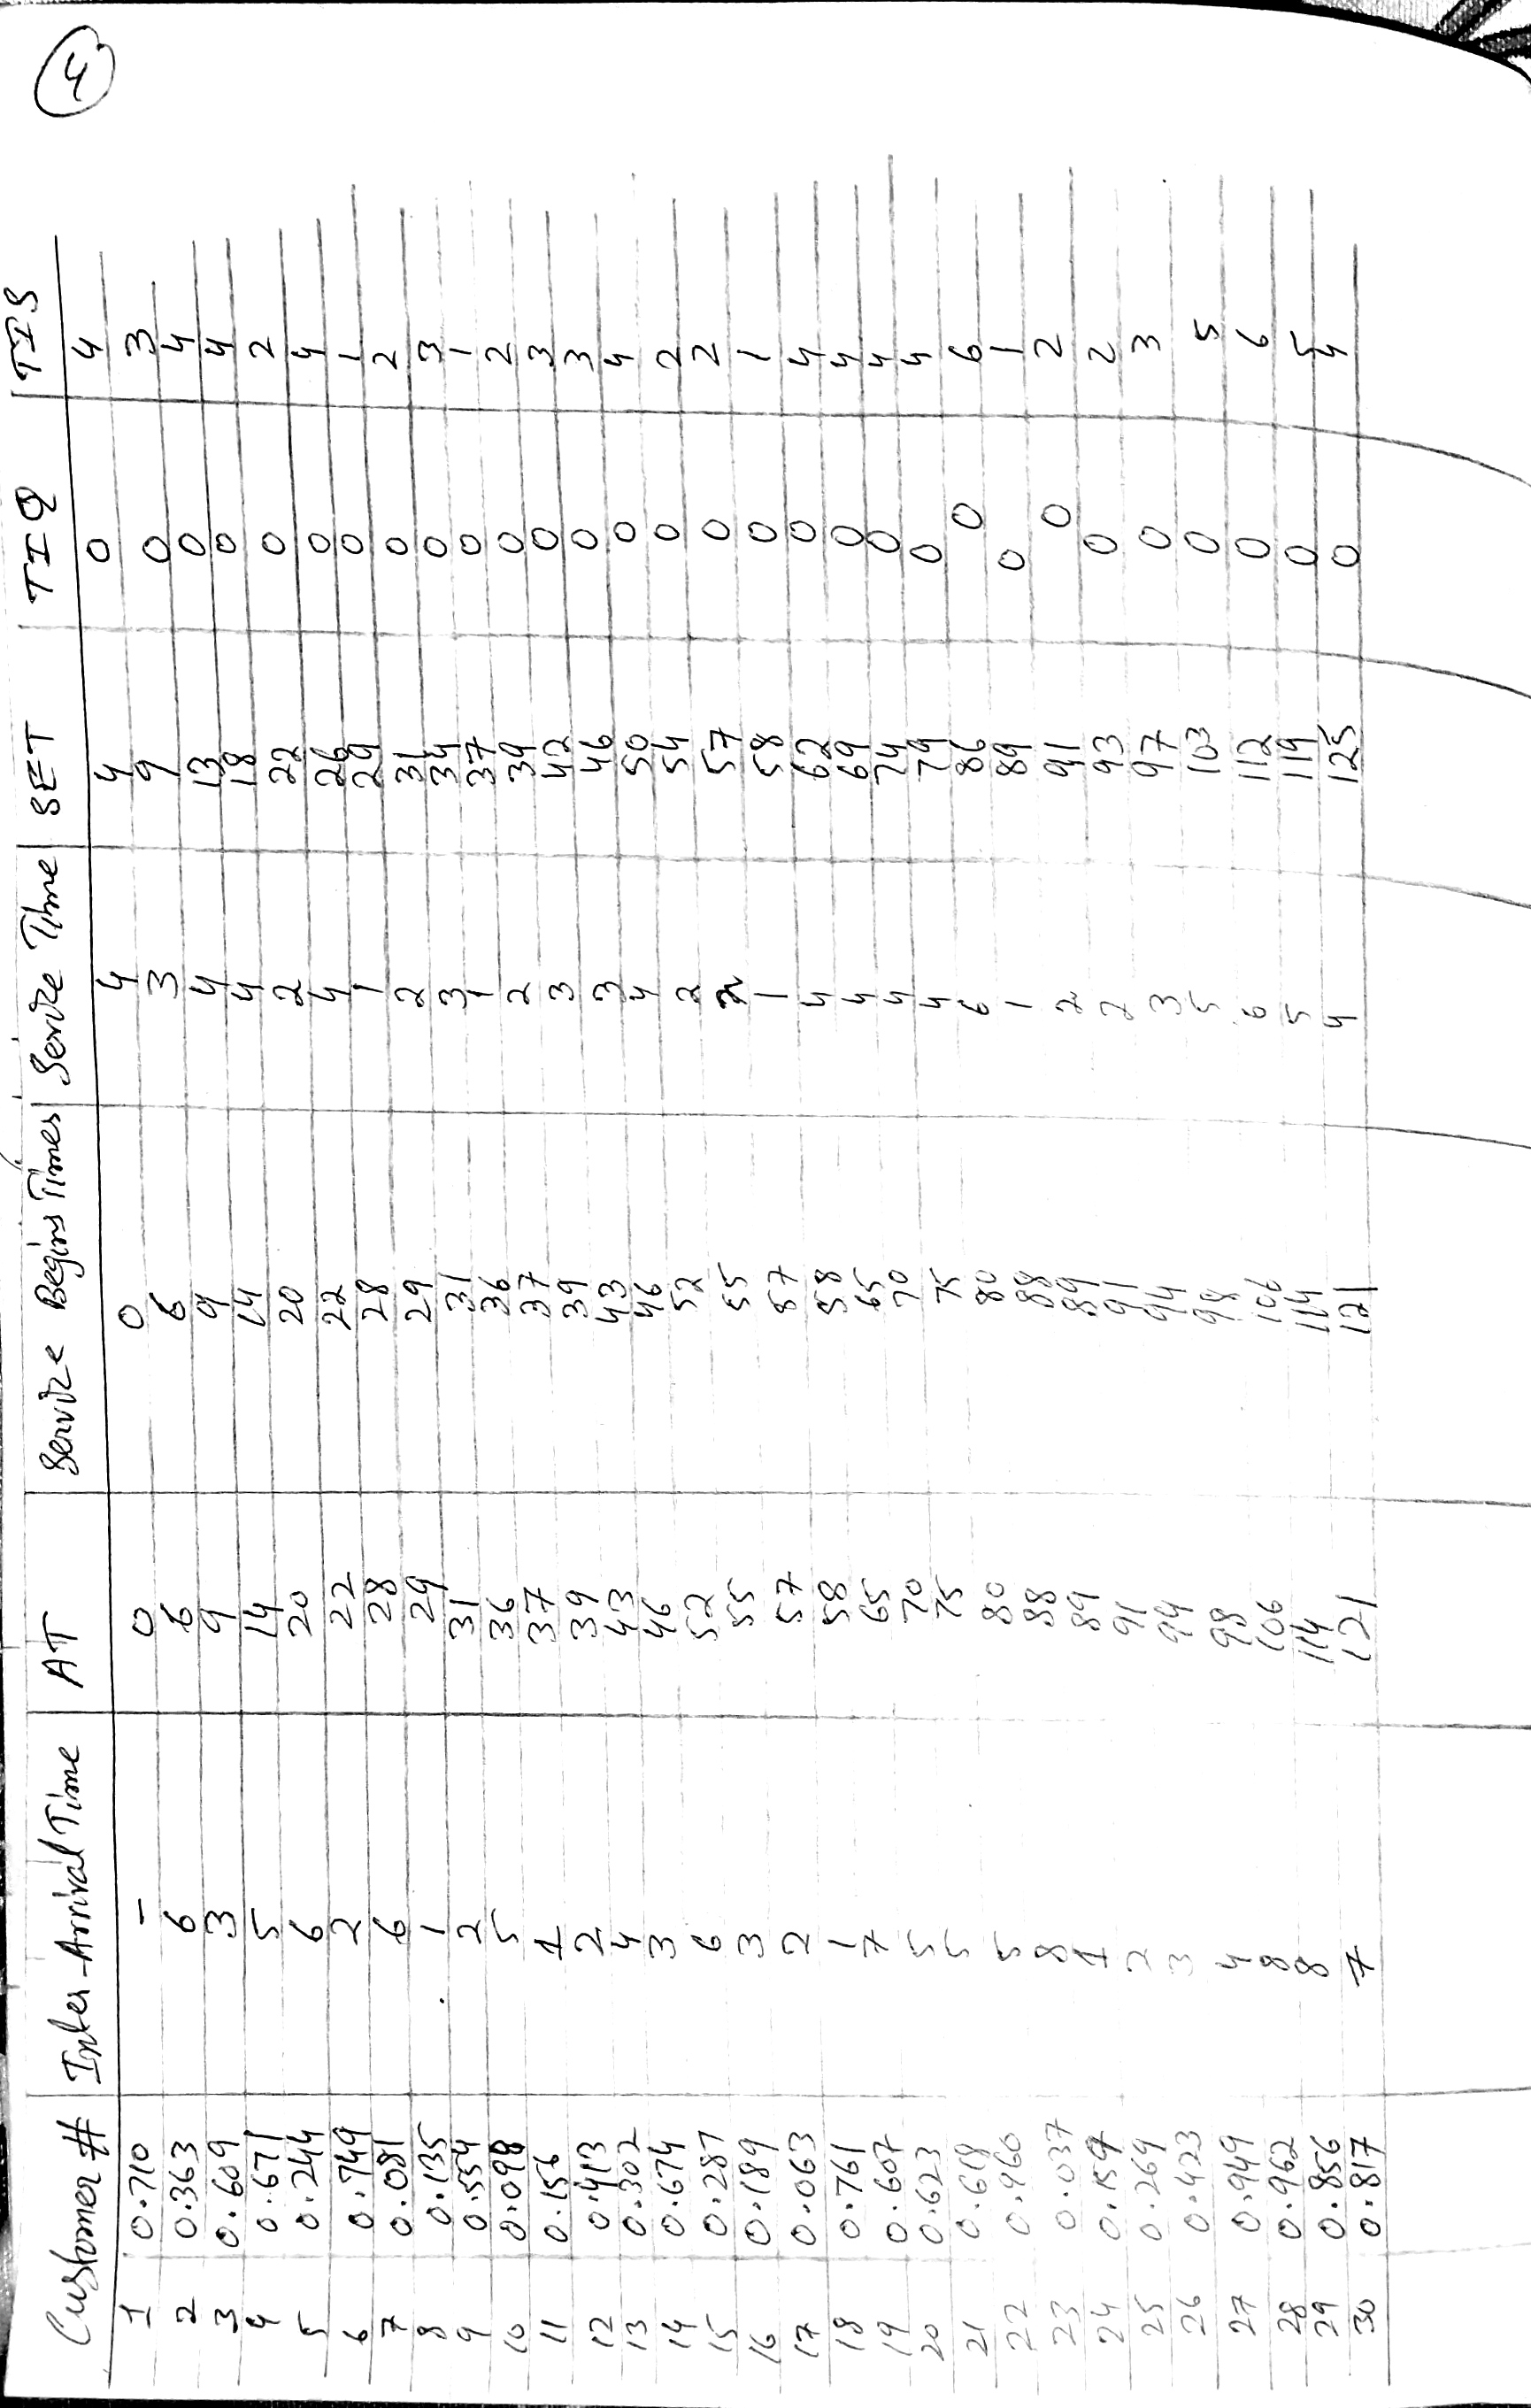 Customer # Inter-Arrival Time AT Service Begins Times Service Time SET TIQ TIS
1 0.710 - 0 0 4 4 0 4
2 0.363 6 6 6 3 9 0 3
3 0.609 3 9 9 4 13 0 4
4 0.671 5 14 14 4 18 0 4
5 0.244 6 20 20 2 22 0 2
6 0.749 2 22 22 4 26 0 4
7 0.081 6 28 28 1 29 0 1
8 0.135 1 29 29 2 31 0 2
9 0.554 2 31 31 3 34 0 3
10 0.098 5 36 36 1 37 0 1
11 0.156 1 37 37 2 39 0 2
12 0.413 2 39 39 3 42 0 3
13 0.302 4 43 43 3 46 0 3
14 0.674 3 46 46 4 50 0 4
15 0.287 6 52 52 2 54 0 2
16 0.189 3 55 55 2 57 0 2
17 0.063 2 57 57 1 58 0 1
18 0.761 1 58 58 4 62 0 4
19 0.607 7 65 65 4 69 0 4
20 0.623 5 70 70 4 74 0 4
21 0.618 5 75 75 4 79 0 4
22 0.960 5 80 80 6 86 0 6
23 0.037 8 88 88 1 89 0 1
24 0.159 1 89 89 2 91 0 2
25 0.269 2 91 91 2 93 0 2
26 0.423 3 94 94 3 97 0 3
27 0.949 4 98 98 5 103 0 5
28 0.962 8 106 106 6 112 0 6
29 0.856 8 114 114 5 119 0 5
30 0.817 7 121 121 4 125 0 4